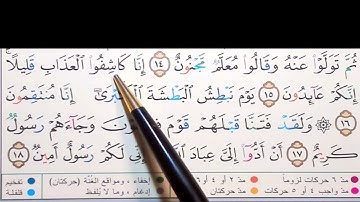 ثُمَّ تَوَلَّوْا۟ عَنْهُ وَقَالُوا۟ مُعَلَّمٌ مَّجْنُونٌ ١٤ إِنَّا كَاشِفُوا۟ ٱلْعَذَابِ قَلِيلًا
إِنَّكُمْ عَآئِدُونَ ١٥ يَوْمَ نَبْطِشُ ٱلْبَطْشَةَ ٱلْكُبْرَىٰٓ إِنَّا مُنتَقِمُونَ
١٦ ۞ وَلَقَدْ فَتَنَّا قَبْلَهُمْ قَوْمَ فِرْعَوْنَ وَجَآءَهُمْ رَسُولٌ
كَرِيمٌ ١٧ أَنْ أَدُّوٓا۟ إِلَىَّ عِبَادَ ٱللَّهِ إِنِّى لَكُمْ رَسُولٌ أَمِينٌ ١٨
مدّ ٦ حركات لزوماً مدّ ٢ أو ٤ أو ٦ إخفاء، ومواقع الغُنَّة (حركتان) تفخيم
مدّ واجب ٤ أو ٥ حركات مدّ حركتان إدغام، وما لا يُلفَظ قلقلة